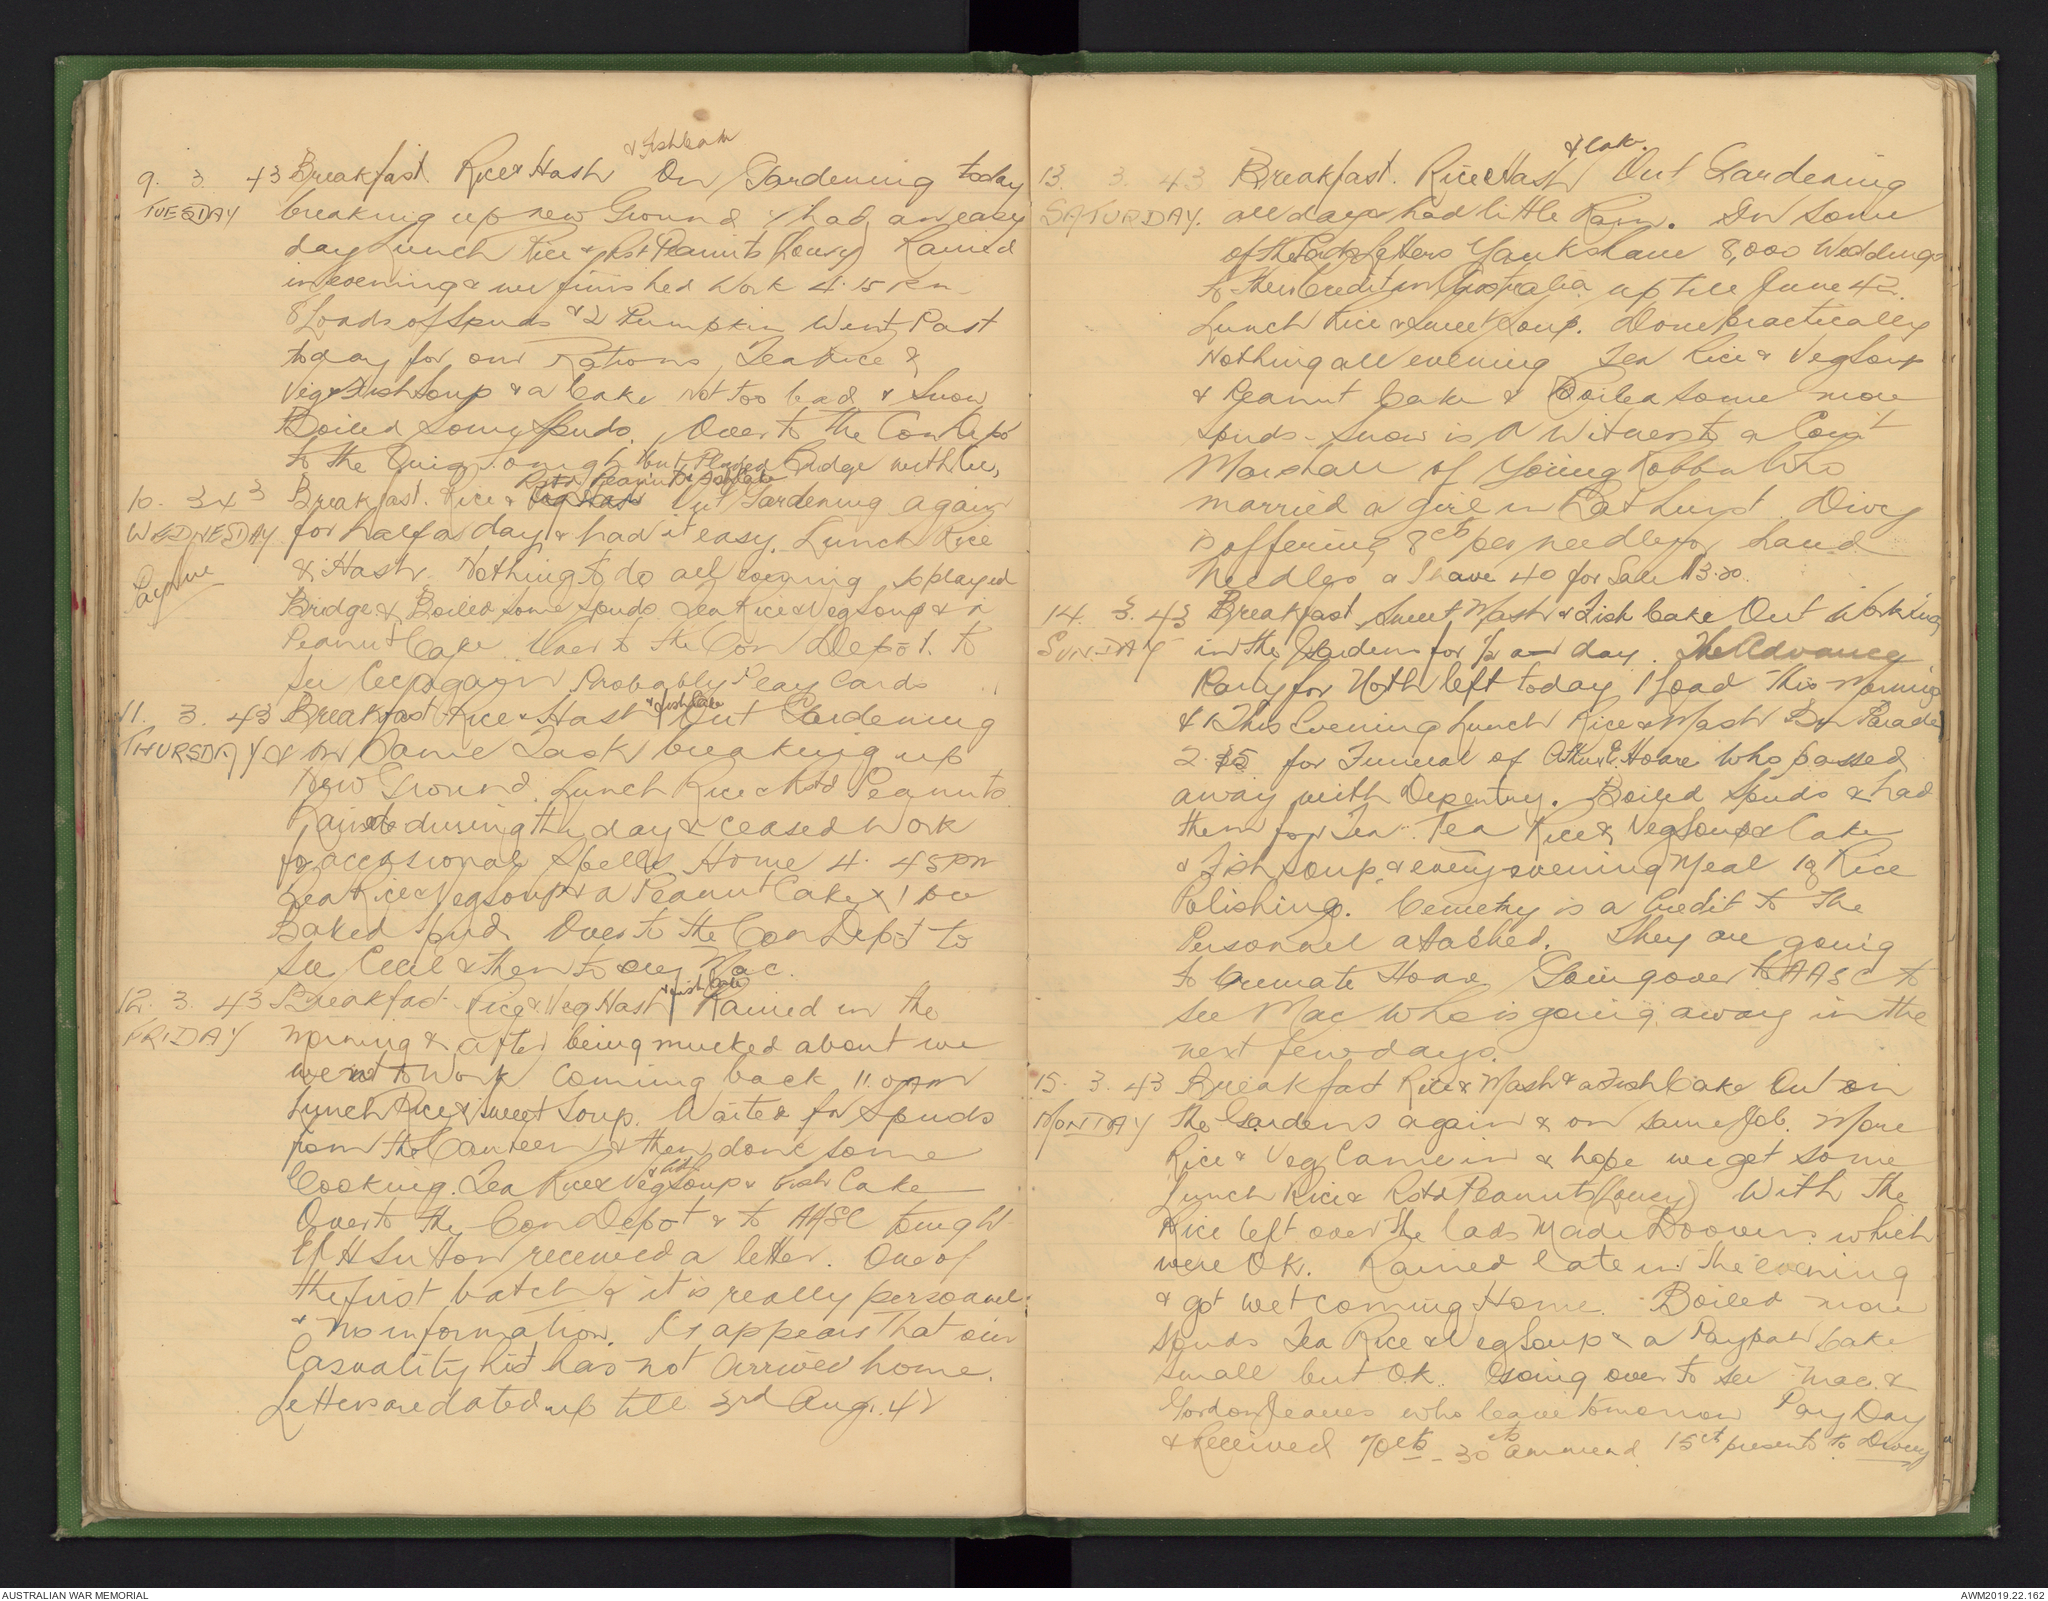 & Fishcake
9. 3. 43 Breakfast. Rice & Hash On Gardening today
TUESDAY breaking up new Ground & had an easy
day Lunch Rice & Rst Peanuts (Lousy) Rained
in evening & we finished Work 4.15 Pm
8 Loads of Spuds & 2 Pumpkin Went Past
today for our Rations Tea Rice &
Veg & Fish Soup & a Cake Not Too bad & Snow
Boiled Some Spuds. Over to the Con Depot
to the Tonight but Played Bridge with
Rstd Peanuts & Fishcake
10. 3 43 Breakfast. Rice & Veg Hash Out Gardening again
WEDNESDAY for half a day & had it easy. Lunch Rice
& Hash. Nothing to do all evening so played
Bridge & Boiled some Spuds Tea Rice & Veg Soup & a
Peanut Cake. Over to the Con Depot to
See Cec again Probably Play Cards
& Fishcake
11. 3. 43 Breakfast Rice & Hash Out Gardening
THURSDAY & on Same Task breaking up
New Ground. Lunch Rice & Rstd Peanuts
Rained during the day & ceased Work
for occasional Spells Home 4. 45 PM
Tea Rice & Veg Soup & a Peanut Cake & 1
Baked Spud Over to the Con Depot to
See Cecil & then to see Mac.
& Fish Cake
12. 3. 43 Breakfast. Rice & Veg Hash Rained in the
FRIDAY Morning & after being mucked about we
went to Work Coming back 11.0 AM
Lunch Rice & Sweet Soup. Waited for Spuds
from the Canteen & then done some
Cooking. Tea Rice & Veg Soup & Fish Cake
Over to the Con Depot & to AASC tonight
H Sutton received a letter. One of
the first batch & it is really personnel
& no information. It appears that our
Casuality List has not arrived home.
Letters are dated up till 3rd Aug. 42
& Cake.
13. 3. 43 Breakfast. Rice & Hash Out Gardening
SATURDAY. all day & had little Rain. In some
of the Letters Yanks have 8,000 Weddings
to their Credit in Australia up till June 42.
Lunch Rice & Sweet Soup. Done practically
Nothing all evening Tea Rice & Veg Soup
& Peanut Cake & Boiled some more
Spuds. Snow is a Witness to a Court
Marshall of Young Robb who
married a girl in Bathurst. Divvy
is offering 8cts per needle for hand
needles & I have 40 for Sale $3.20.
14. 3. 43 Breakfast Sweet Mash & Fish Cake Out Working
SUNDAY in the Gardens for 1/2 a day. The Advance
Party for North left today 1 Load This Morning
& 1 This Evening Lunch Rice & Mash On Parade
2.15 for Funeral of Hoare Who passed
away with Dysentry. Boiled Spuds & had
them for Tea. Tea Rice & Veg Soup & Cake
& Fish Soup & every evening Meal is Rice
Polishings. Cemetry is a Credit to the
Personnel atached. They are going
to Cremate Hoare Going over to AASC to
See Mac who is going away in the
next few days.
15. 3. 43 Breakfast Rice & Mash & a Fish Cake Out on
MONDAY the Gardens again & on same Job. More
Rice & Veg Came in & hope we get some
Lunch Rice & Rstd Peanuts (Lousy) With the
Rice left over the lads Made Doovers which
were OK. Rained late in the evening
& got wet coming Home. Boiled more
Spuds Tea Rice & Veg Soup & a Paypaw Cake
Small but OK. Going over to see Mac &
Gordon Jeaves who leave tomorrow Pay Day
& Received 70cts 15ct presents to Divvy
AUSTRALIAN WAR MEMORIAL
AWM2019.22.162